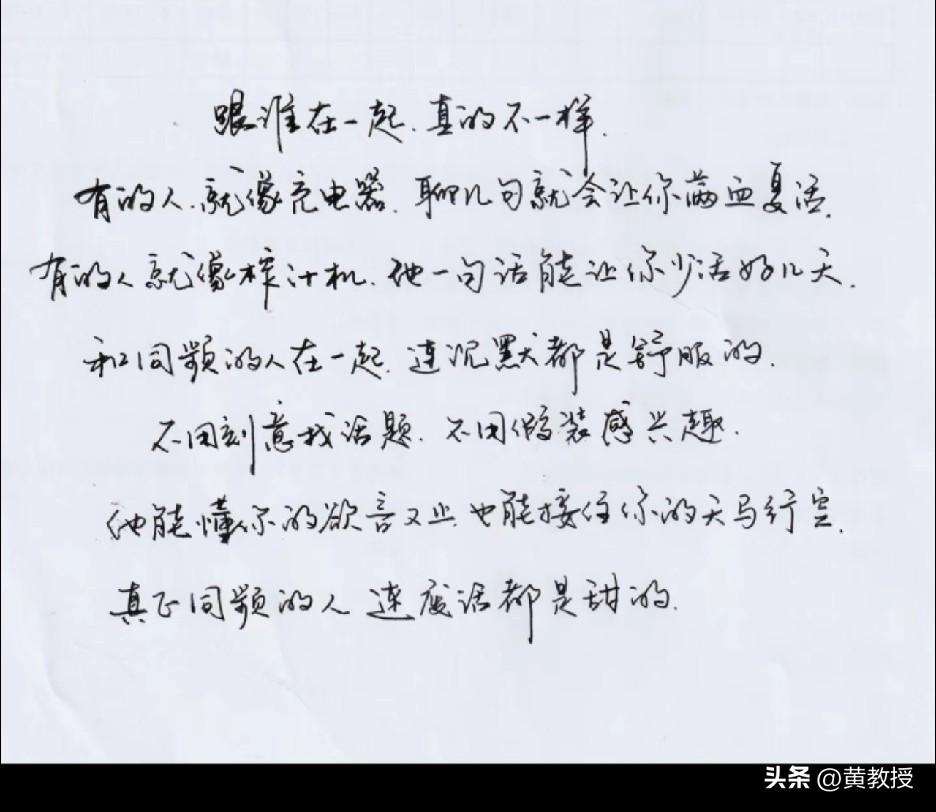 跟谁在一起.真的不一样.
有的人.就像充电器.聊几句就会让你满血复活.
有的人就像榨汁机.他一句话能让你少活好几天.
和同频的人在一起.连沉默都是舒服的.
不用刻意找话题.不用假装感兴趣.
他能懂你的欲言又止也能接住你的天马行空.
真正同频的人连废话都是甜的.
头条 @黄教授